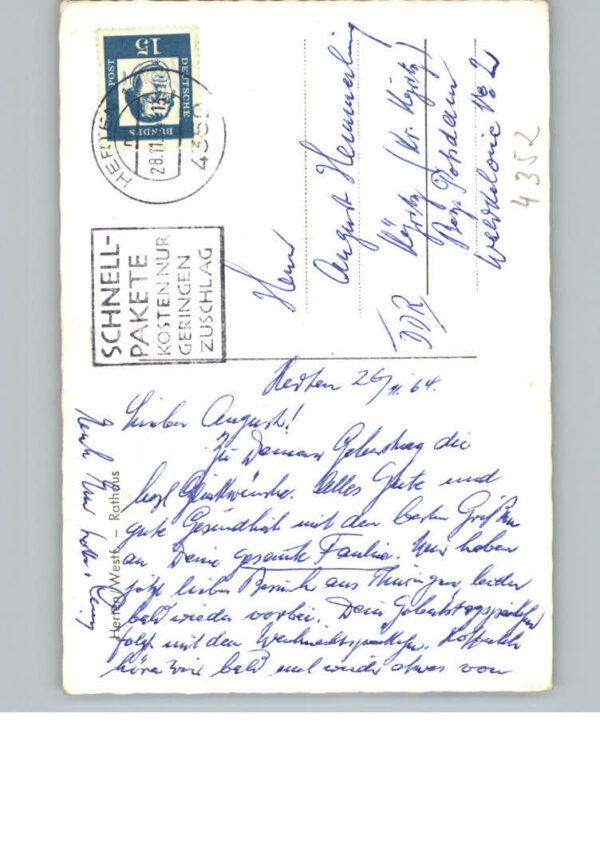 15
DEUTSCHE
BUNDES
POST
HERTEN
28.11.
4352
SCHNELL-
PAKETE
KOSTEN NUR
GERINGEN
ZUSCHLAG
Herrn
August Hemmerling
Kyritz (Kr. Kyritz)
Bez. Potsdam
DDR
4352
Herten/Westf. – Rathaus
Herten 26/11.64.
Lieber August!
Zu Deinem Geburtstag die
herzl. Glückwünsche. Alles Gute und
gute Gesundheit mit den besten Grüßen
an Deine gesamte Familie. Wir haben
jetzt lieben Besuch aus Thüringen, leider
bald wieder vorbei. Dein Geburtstagspäckchen
folgt mit dem Weihnachtspäckchen. Hoffentlich
hören wir bald mal wieder etwas von